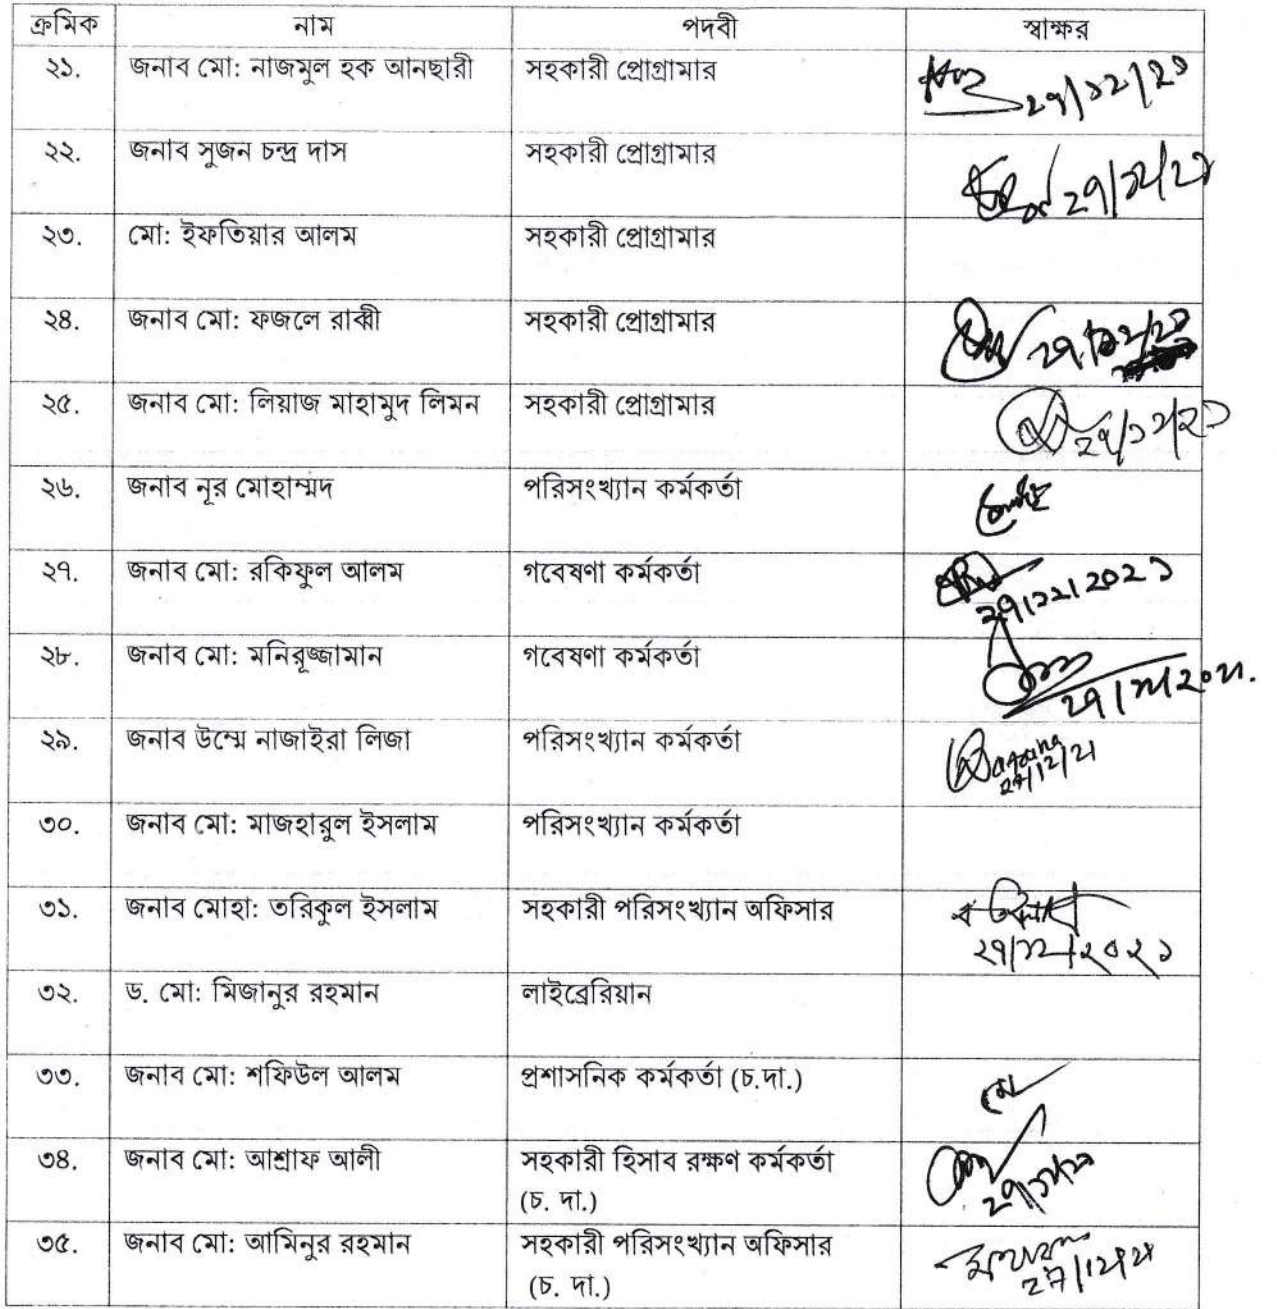 ক্রমিক নাম পদবী স্বাক্ষর
২১. জনাব মো: নাজমুল হক আনছারী সহকারী প্রোগ্রামার ২৭/১২/২১
২২. জনাব সুজন চন্দ্র দাস সহকারী প্রোগ্রামার ২৭/১২/২১
২৩. মো: ইফতিয়ার আলম সহকারী প্রোগ্রামার
২৪. জনাব মো: ফজলে রাব্বী সহকারী প্রোগ্রামার ২৭/১২/২১
২৫. জনাব মো: লিয়াজ মাহামুদ লিমন সহকারী প্রোগ্রামার ২৭/১২/২১
২৬. জনাব নূর মোহাম্মদ পরিসংখ্যান কর্মকর্তা
২৭. জনাব মো: রকিফুল আলম গবেষণা কর্মকর্তা
২৭/১২/২০২১
২৮. জনাব মো: মনিরুজ্জামান গবেষণা কর্মকর্তা
২৯. জনাব উম্মে নাজাইরা লিজা পরিসংখ্যান কর্মকর্তা
27/12/21
৩০. জনাব মো: মাজহারুল ইসলাম পরিসংখ্যান কর্মকর্তা
৩১. জনাব মোহা: তরিকুল ইসলাম সহকারী পরিসংখ্যান অফিসার
২৭/১২/২০২১
৩২. ড. মো: মিজানুর রহমান লাইব্রেরিয়ান
৩৩. জনাব মো: শফিউল আলম প্রশাসনিক কর্মকর্তা (চ.দা.)
৩৪. জনাব মো: আশ্রাফ আলী সহকারী হিসাব রক্ষণ কর্মকর্তা
(চ. দা.) ২৭/১২/২১
৩৫. জনাব মো: আমিনুর রহমান সহকারী পরিসংখ্যান অফিসার
(চ. দা.) 27/12/21